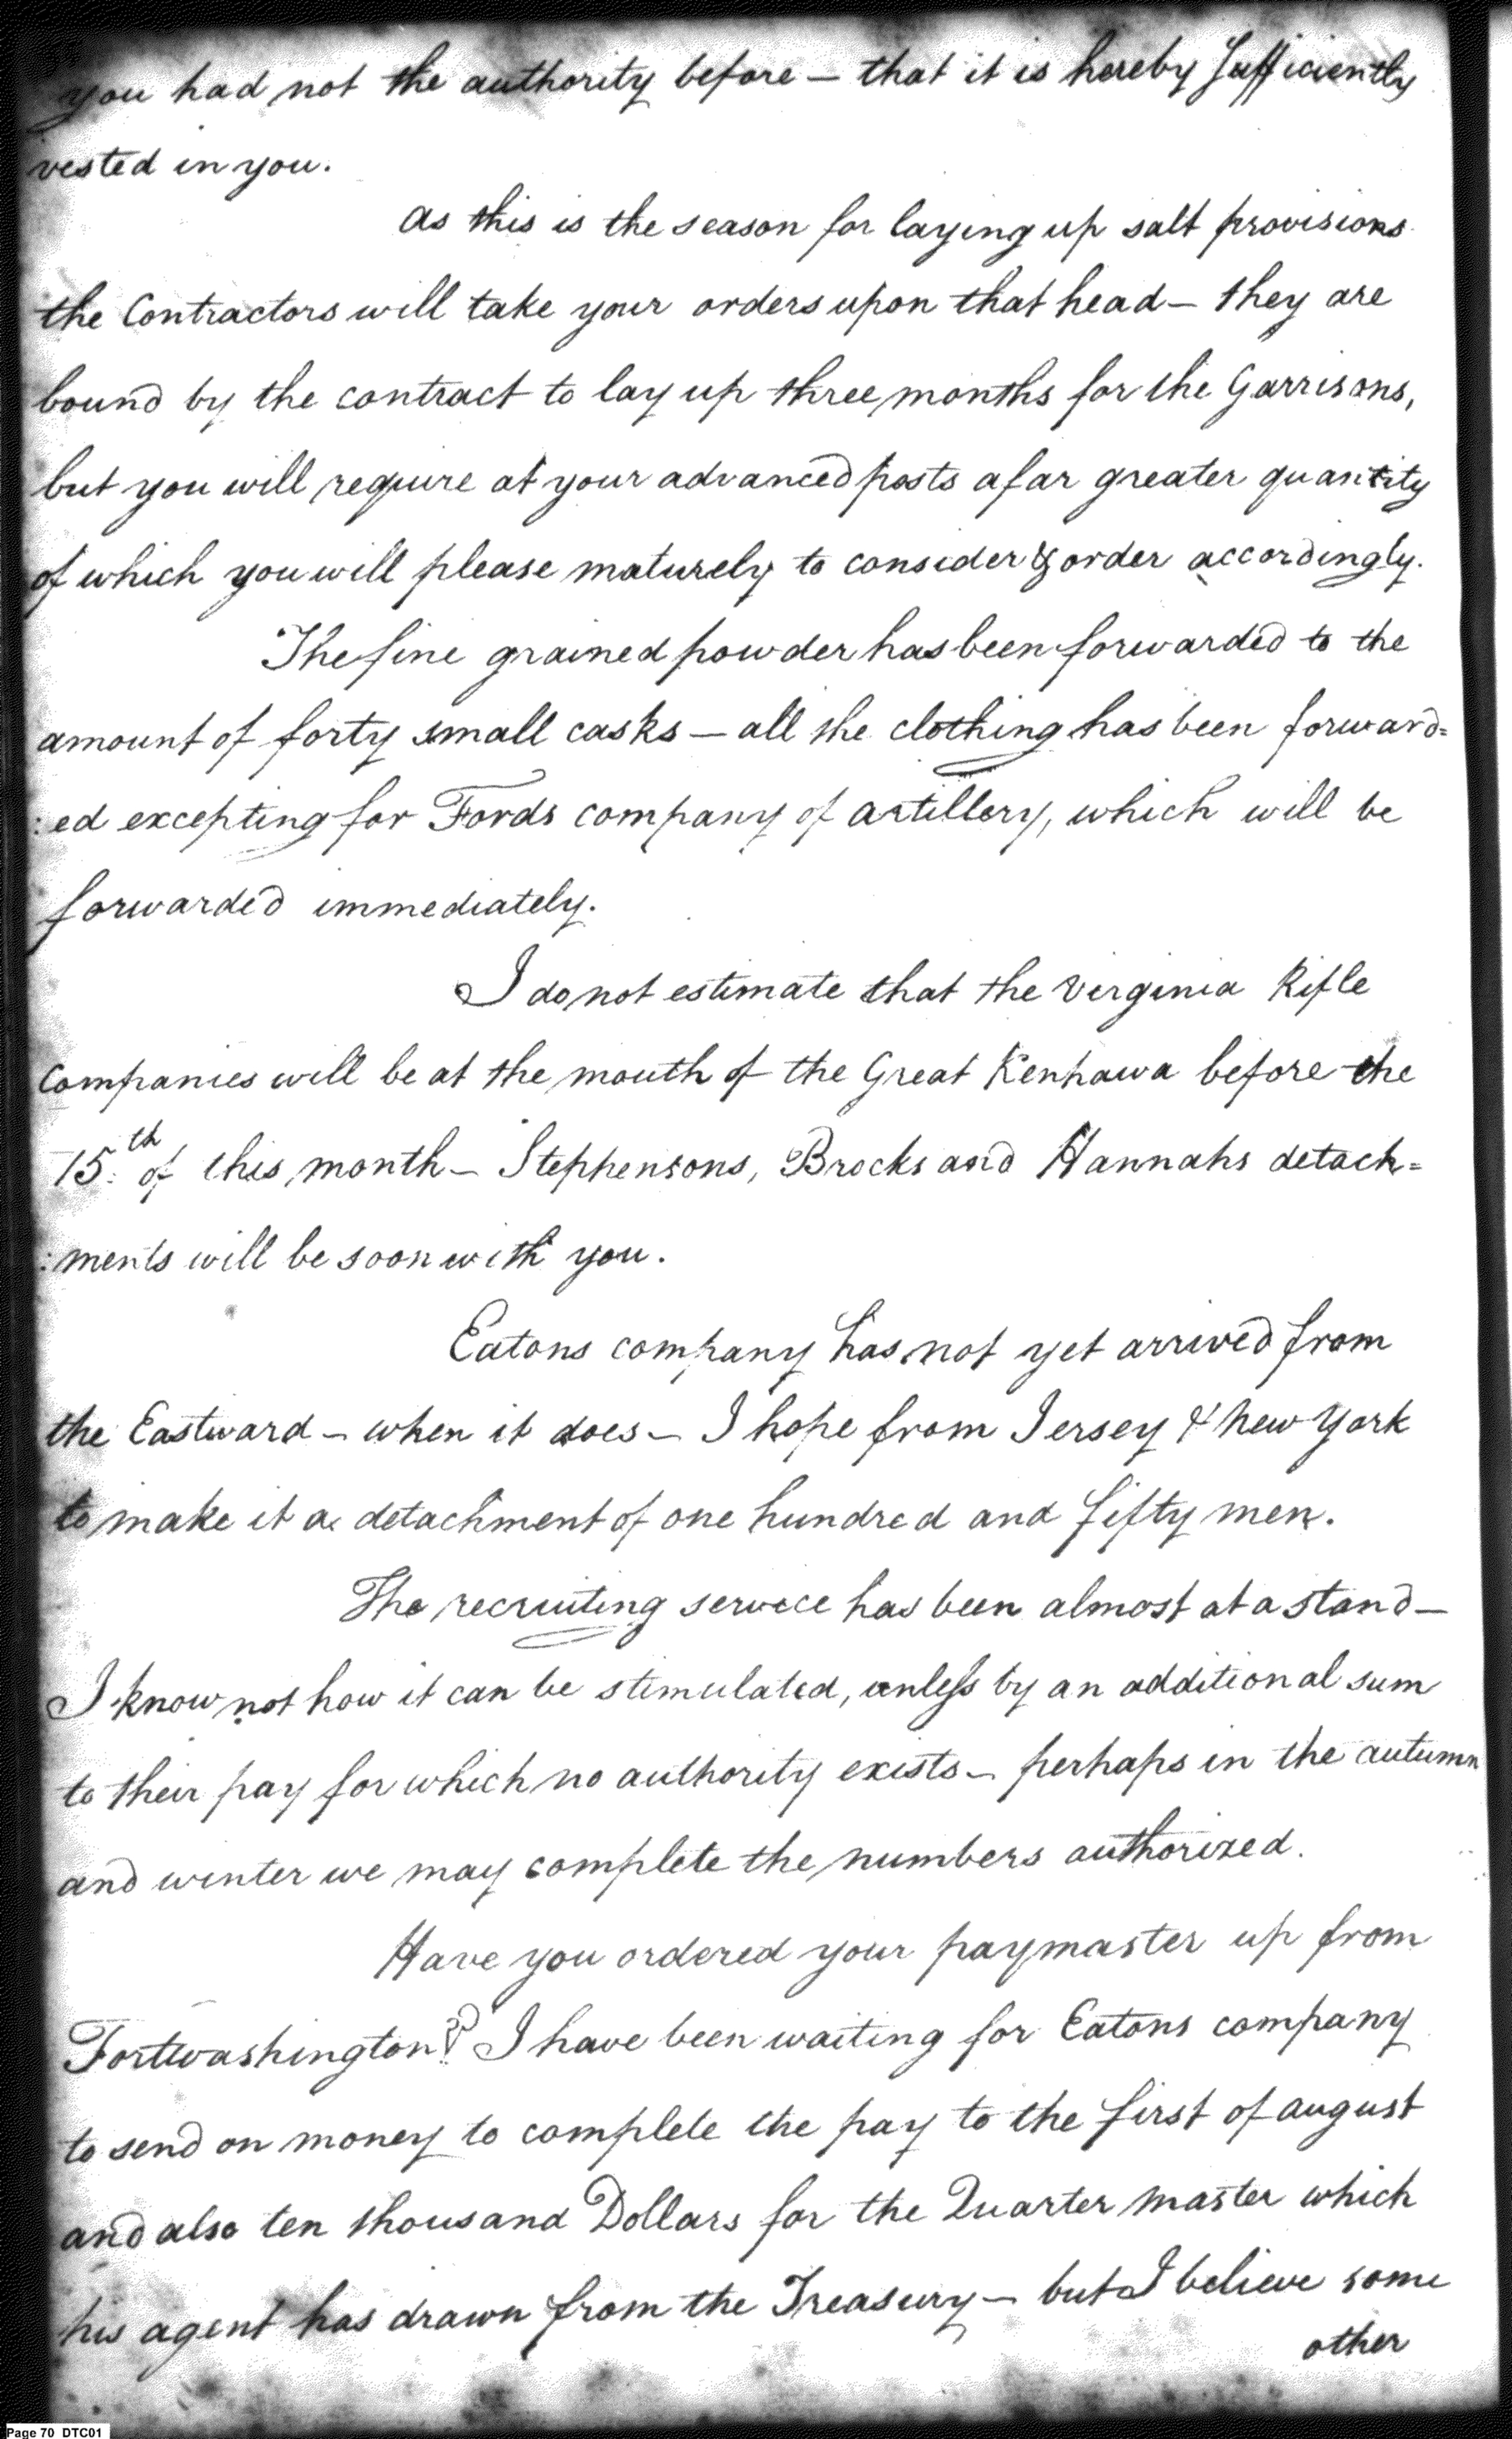 you had not the authority before – that it is hereby sufficiently
vested in you.
As this is the season for laying up salt provisions
the Contractors will take your orders upon that head – they are
bound by the contract to lay up three months for the Garrisons,
but you will require at your advanced posts a far greater quantity
of which you will please maturely to consider & order accordingly.
The fine grained powder has been forwarded to the
amount of forty small casks – all the clothing has been forward=
:ed excepting for Fords company of artillery, which will be
forwarded immediately.
I do not estimate that the Virginia Rifle
Companies will be at the mouth of the Great Kenhawa before the
15.th of this month – Stephensons, Brocks and Hannahs detach=
:ments will be soon with you.
Eatons company has not yet arrived from
the Eastward – when it does – I hope from Jersey & New York
to make it a detachment of one hundred and fifty men.
The recruiting service has been almost at a stand –
I know not how it can be stimulated, unless by an additional sum
to their pay for which no authority exists – perhaps in the autumn
and winter we may complete the numbers authorized.
Have you ordered your paymaster up from
Fortwashington? I have been waiting for Eatons company
to send on money to complete the pay to the first of august
and also ten thousand Dollars for the Quarter master which
his agent has drawn from the Treasury – but I believe some
other
Page 70 DTC01